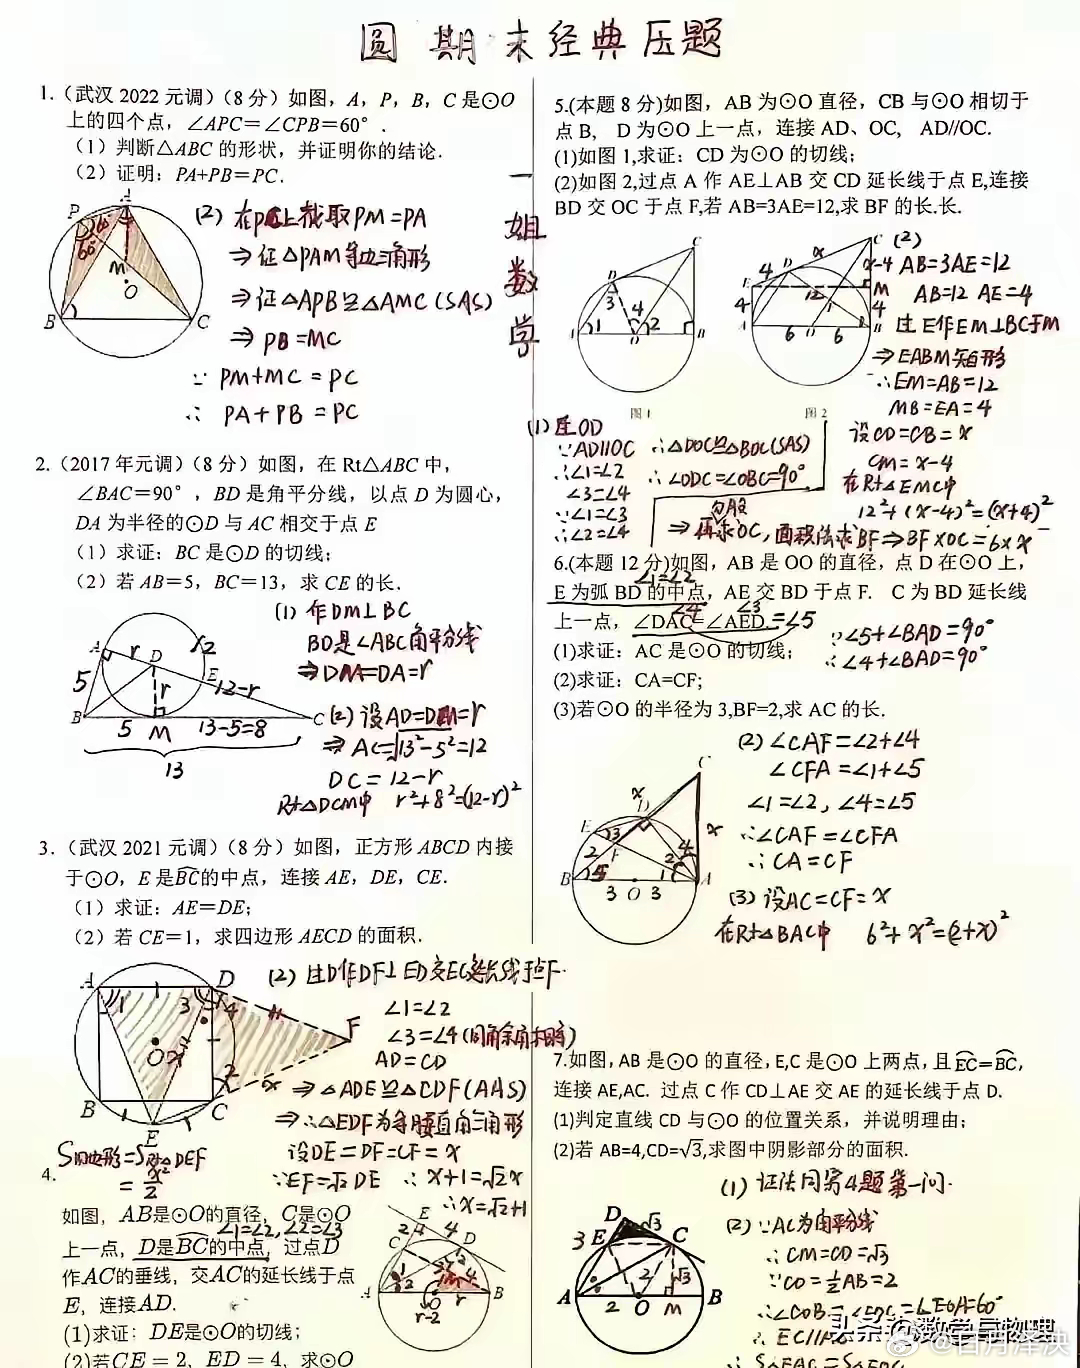 圆 期末经典压题
1.（武汉 2022 元调）（8 分）如图，A，P，B，C 是⊙O
上的四个点，∠APC＝∠CPB＝60°．
（1）判断△ABC 的形状，并证明你的结论.
（2）证明：PA+PB＝PC.
(2) 在PC上截取PM=PA
⇒证△PAM等边三角形
⇒证△APB≌△AMC(SAS)
⇒PB=MC
∵ PM+MC=PC
∴ PA+PB=PC
P A 60° 60° M O B C
一
姐
数
学
2.（2017 年元调）（8 分）如图，在 Rt△ABC 中，
∠BAC＝90°，BD 是角平分线，以点 D 为圆心，
DA 为半径的⊙D 与 AC 相交于点 E
（1）求证：BC 是⊙D 的切线；
（2）若 AB＝5，BC＝13，求 CE 的长.
(1) 作DM⊥BC
BD是∠ABC角平分线
⇒DM=DA=r
(2) 设AD=DM=r
⇒AC=√13²-5²=12
DC=12-r
Rt△DCM中 r²+8²=(12-r)²
A r D 12 E 12-r 5 r B 5 M 13-5=8 C
13
3.（武汉 2021 元调）（8 分）如图，正方形 ABCD 内接
于⊙O，E 是BC的中点，连接 AE，DE，CE．
（1）求证：AE＝DE；
（2）若 CE＝1，求四边形 AECD 的面积.
(2) 过D作DF⊥ED交EC延长线于点F.
∠1=∠2
∠3=∠4(同角余角相等)
AD=CD
⇒△ADE≌△CDF(AAS)
⇒∴△EDF为等腰直角三角形
设DE=DF=CF=x
∵EF=√2DE ∴x+1=√2x
∴x=√2+1
A D 1 3 4 F O x 2 x B C 1 1 E
S四边形=SRt△DEF
=x²/2
4.
如图，AB是⊙O的直径，C是⊙O
∠1=∠2,∠2=∠3
上一点，D是BC的中点，过点D
作AC的垂线，交AC的延长线于点
E，连接AD.
(1)求证：DE是⊙O的切线；
(2)若CE＝2，ED＝4，求⊙O
E 2 4 4 D C A O B r r-2
5.(本题 8 分)如图，AB 为⊙O 直径，CB 与⊙O 相切于
点 B， D 为⊙O 上一点，连接 AD、OC， AD//OC.
(1)如图 1,求证：CD 为⊙O 的切线；
(2)如图 2,过点 A 作 AE⊥AB 交 CD 延长线于点 E,连接
BD 交 OC 于点 F,若 AB=3AE=12,求 BF 的长.长.
C D 3 4 1 2 O B
图 1
C x x-4 4 D E 12 M 4 4 A 6 6 B
图 2
(2)
AB=3AE=12
AB=12 AE=4
过E作EM⊥BC于M
⇒EABM矩形
∴EM=AB=12
MB=EA=4
设CD=CB=x
CM=x-4
在Rt△EMC中
12²+(x-4)²=(x+4)²
(1)连OD
∵AD∥OC ∴△DOC≌△BOC(SAS)
∴∠1=∠2 ∴∠ODC=∠OBC=90°
∠3=∠4
∵∠1=∠3
∴∠2=∠4
⇒再求OC,面积法求BF⇒BF×OC=6×x
6.(本题 12 分)如图，AB 是 OO 的直径，点 D 在⊙O 上，
∠1=∠2
E 为弧 BD 的中点，AE 交 BD 于点 F. C 为 BD 延长线
∠4 ∠3
上一点，∠DAC=∠AED.=∠5
(1)求证：AC 是⊙O 的切线；
(2)求证：CA=CF;
(3)若⊙O 的半径为 3,BF=2,求 AC 的长.
∵∠5+∠BAD=90°
∴∠4+∠BAD=90°
(2) ∠CAF=∠2+∠4
∠CFA=∠1+∠5
∠1=∠2, ∠4=∠5
∴∠CAF=∠CFA
∴CA=CF
(3) 设AC=CF=x
在Rt△BAC中 6²+x²=(2+x)²
C x D E 3 x 2 F 4 2 B 5 1 A 3 O 3
7.如图，AB 是⊙O 的直径，E,C 是⊙O 上两点，且 EC=BC，
连接 AE,AC. 过点 C 作 CD⊥AE 交 AE 的延长线于点 D.
(1)判定直线 CD 与⊙O 的位置关系，并说明理由；
(2)若 AB=4,CD=√3,求图中阴影部分的面积.
(1) 证法同第4题第一问.
(2) ∵AC为角平分线
∴CM=CD=√3
∵CO=½AB=2
∴∠COB=∠EOC=∠EOA=60°
∴EC∥
∴S△EAC=S△EOC
D √3 3 E C 2 √3 A 2 O M B
头条@数学与物理
@白月泽泱